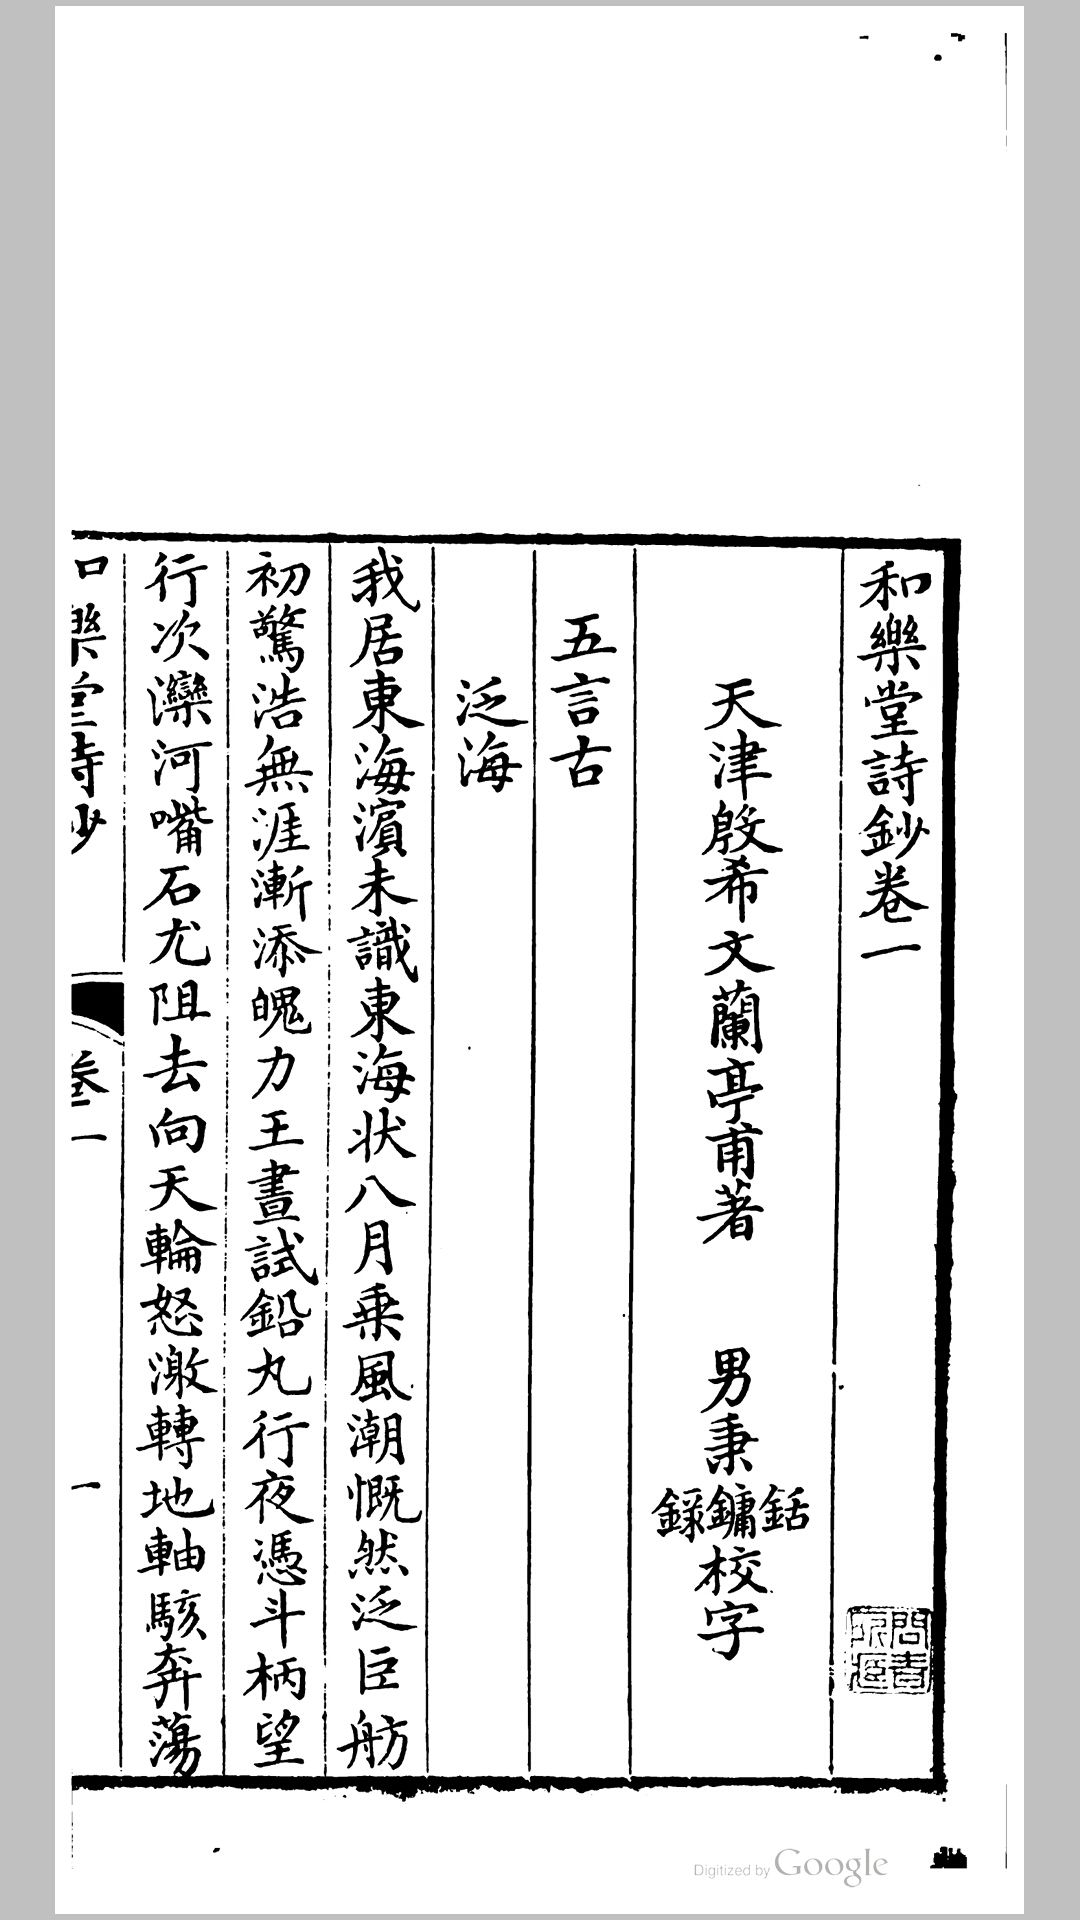 和樂堂詩鈔卷一
天津殷希文蘭亭甫著 男秉銛鏞錄校字
五言古
泛海
我居東海濱未識東海狀八月乗風潮慨然泛巨舫
初驚浩無涯漸添魄力王晝試鉛丸行夜憑斗柄望
行次灤河嘴石尤阻去向天輪怒激轉地軸駭奔蕩
和樂堂詩鈔 卷一 一
Digitized by Google